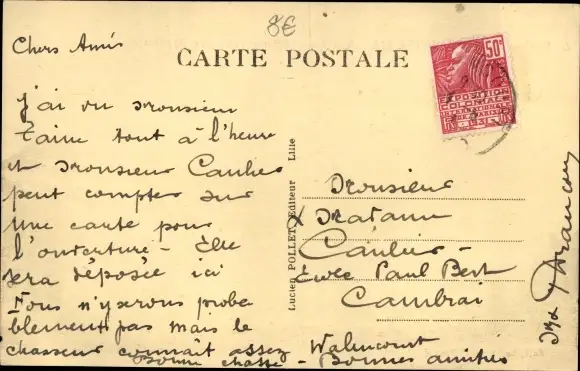 8€
CARTE POSTALE
Chers Amis
J'ai vu Monsieur
Taine tout à l'heure
et Monsieur Caulier
peut compter sur
une carte pour
l'ouverture - Elle
sera déposée ici
Nous n'y serons proba
blement pas mais le
chasseur connaît assez Walincourt
Bonne chasse - Bonnes amitiés
Lucien POLLET, Editeur Lille
50c
EXPOSITION
COLONIALE
INTERNATIONALE
PARIS 1931
Monsieur
& Madame
Caulier -
Rue Paul Bert
Cambrai